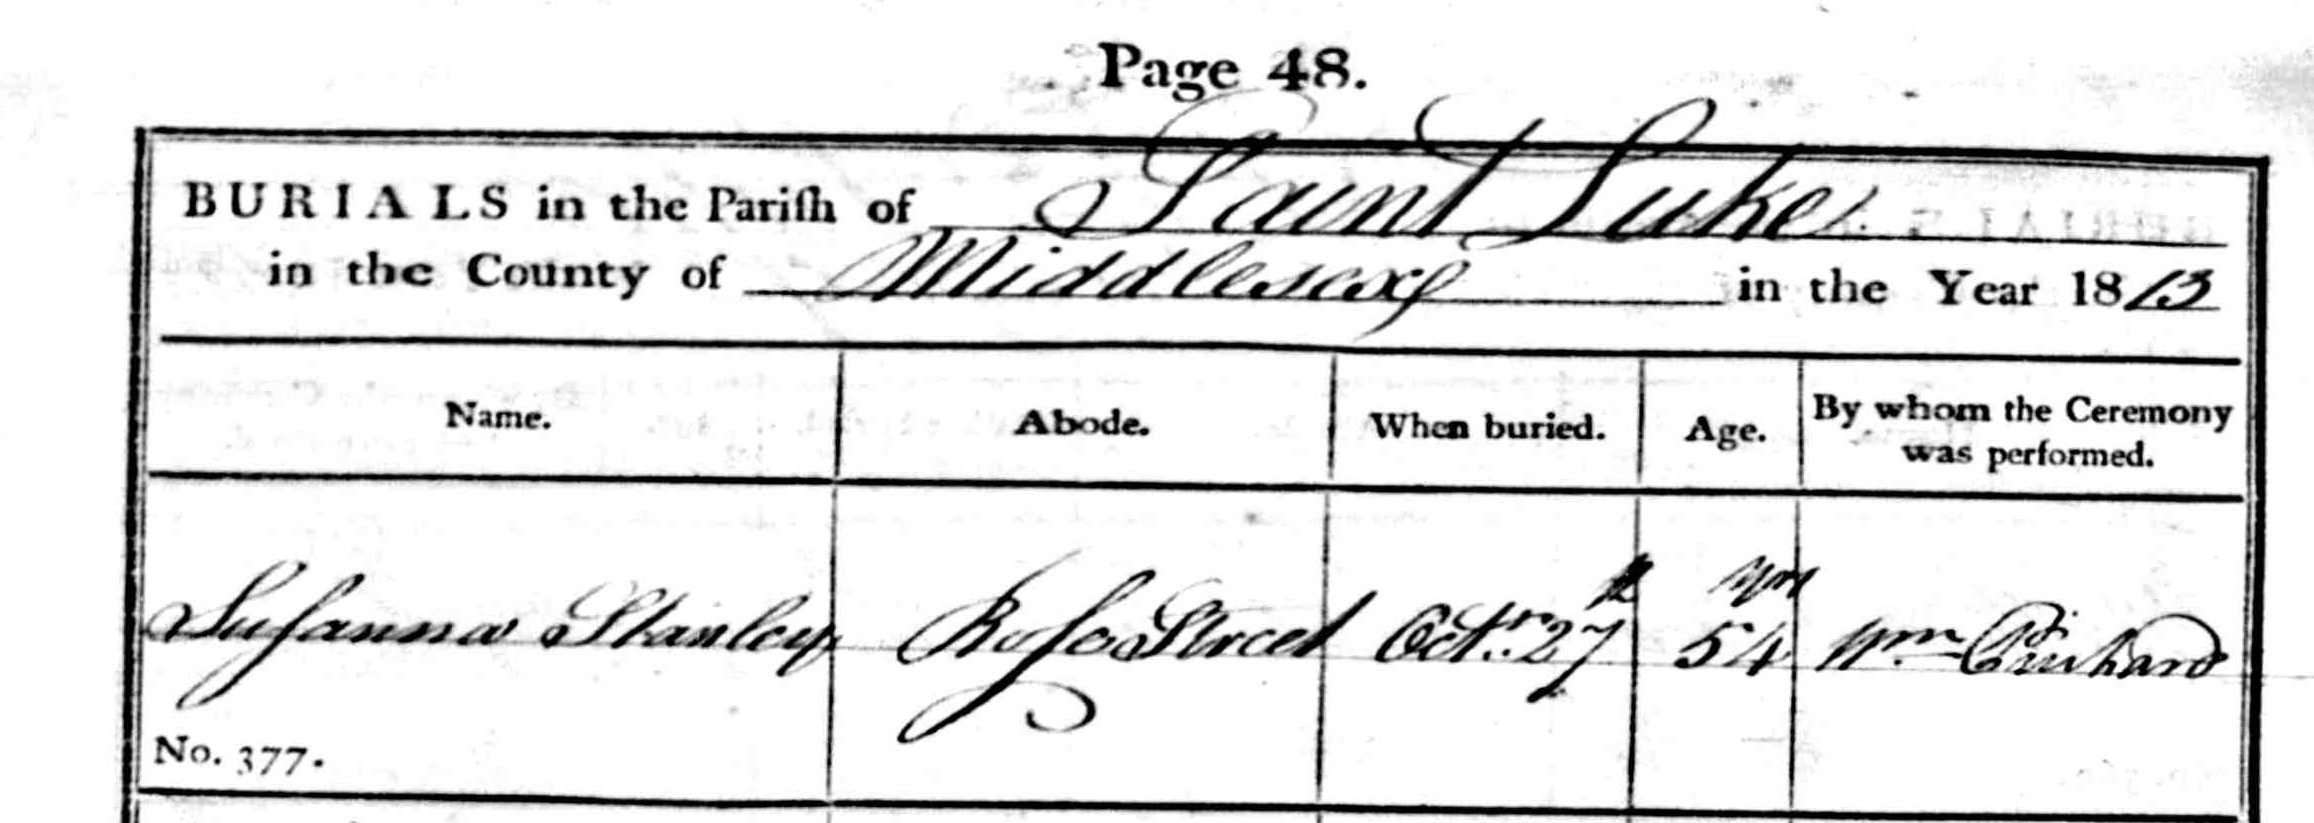 Page 48.
BURIALS in the Pariſh of Saint Luke
in the County of Middlesex in the Year 1813
Name. Abode. When buried. Age. By whom the Ceremony was performed.
Suſanna Stanley Roſe Street Octr. 27th 54 yrs Wm. Pinhard
No. 377.